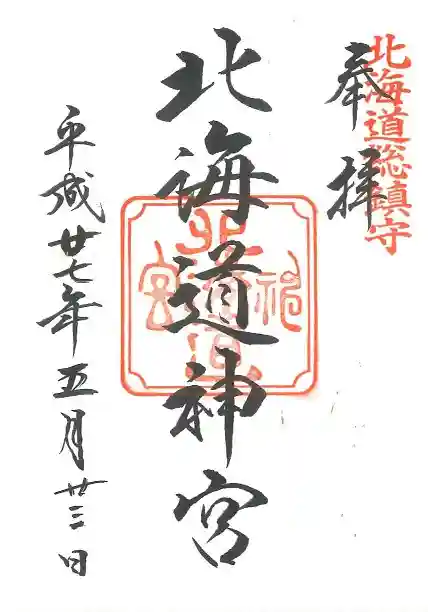 北海道総鎮守
奉拝
北海道神宮
北海道神宮
平成廿七年五月廿三日